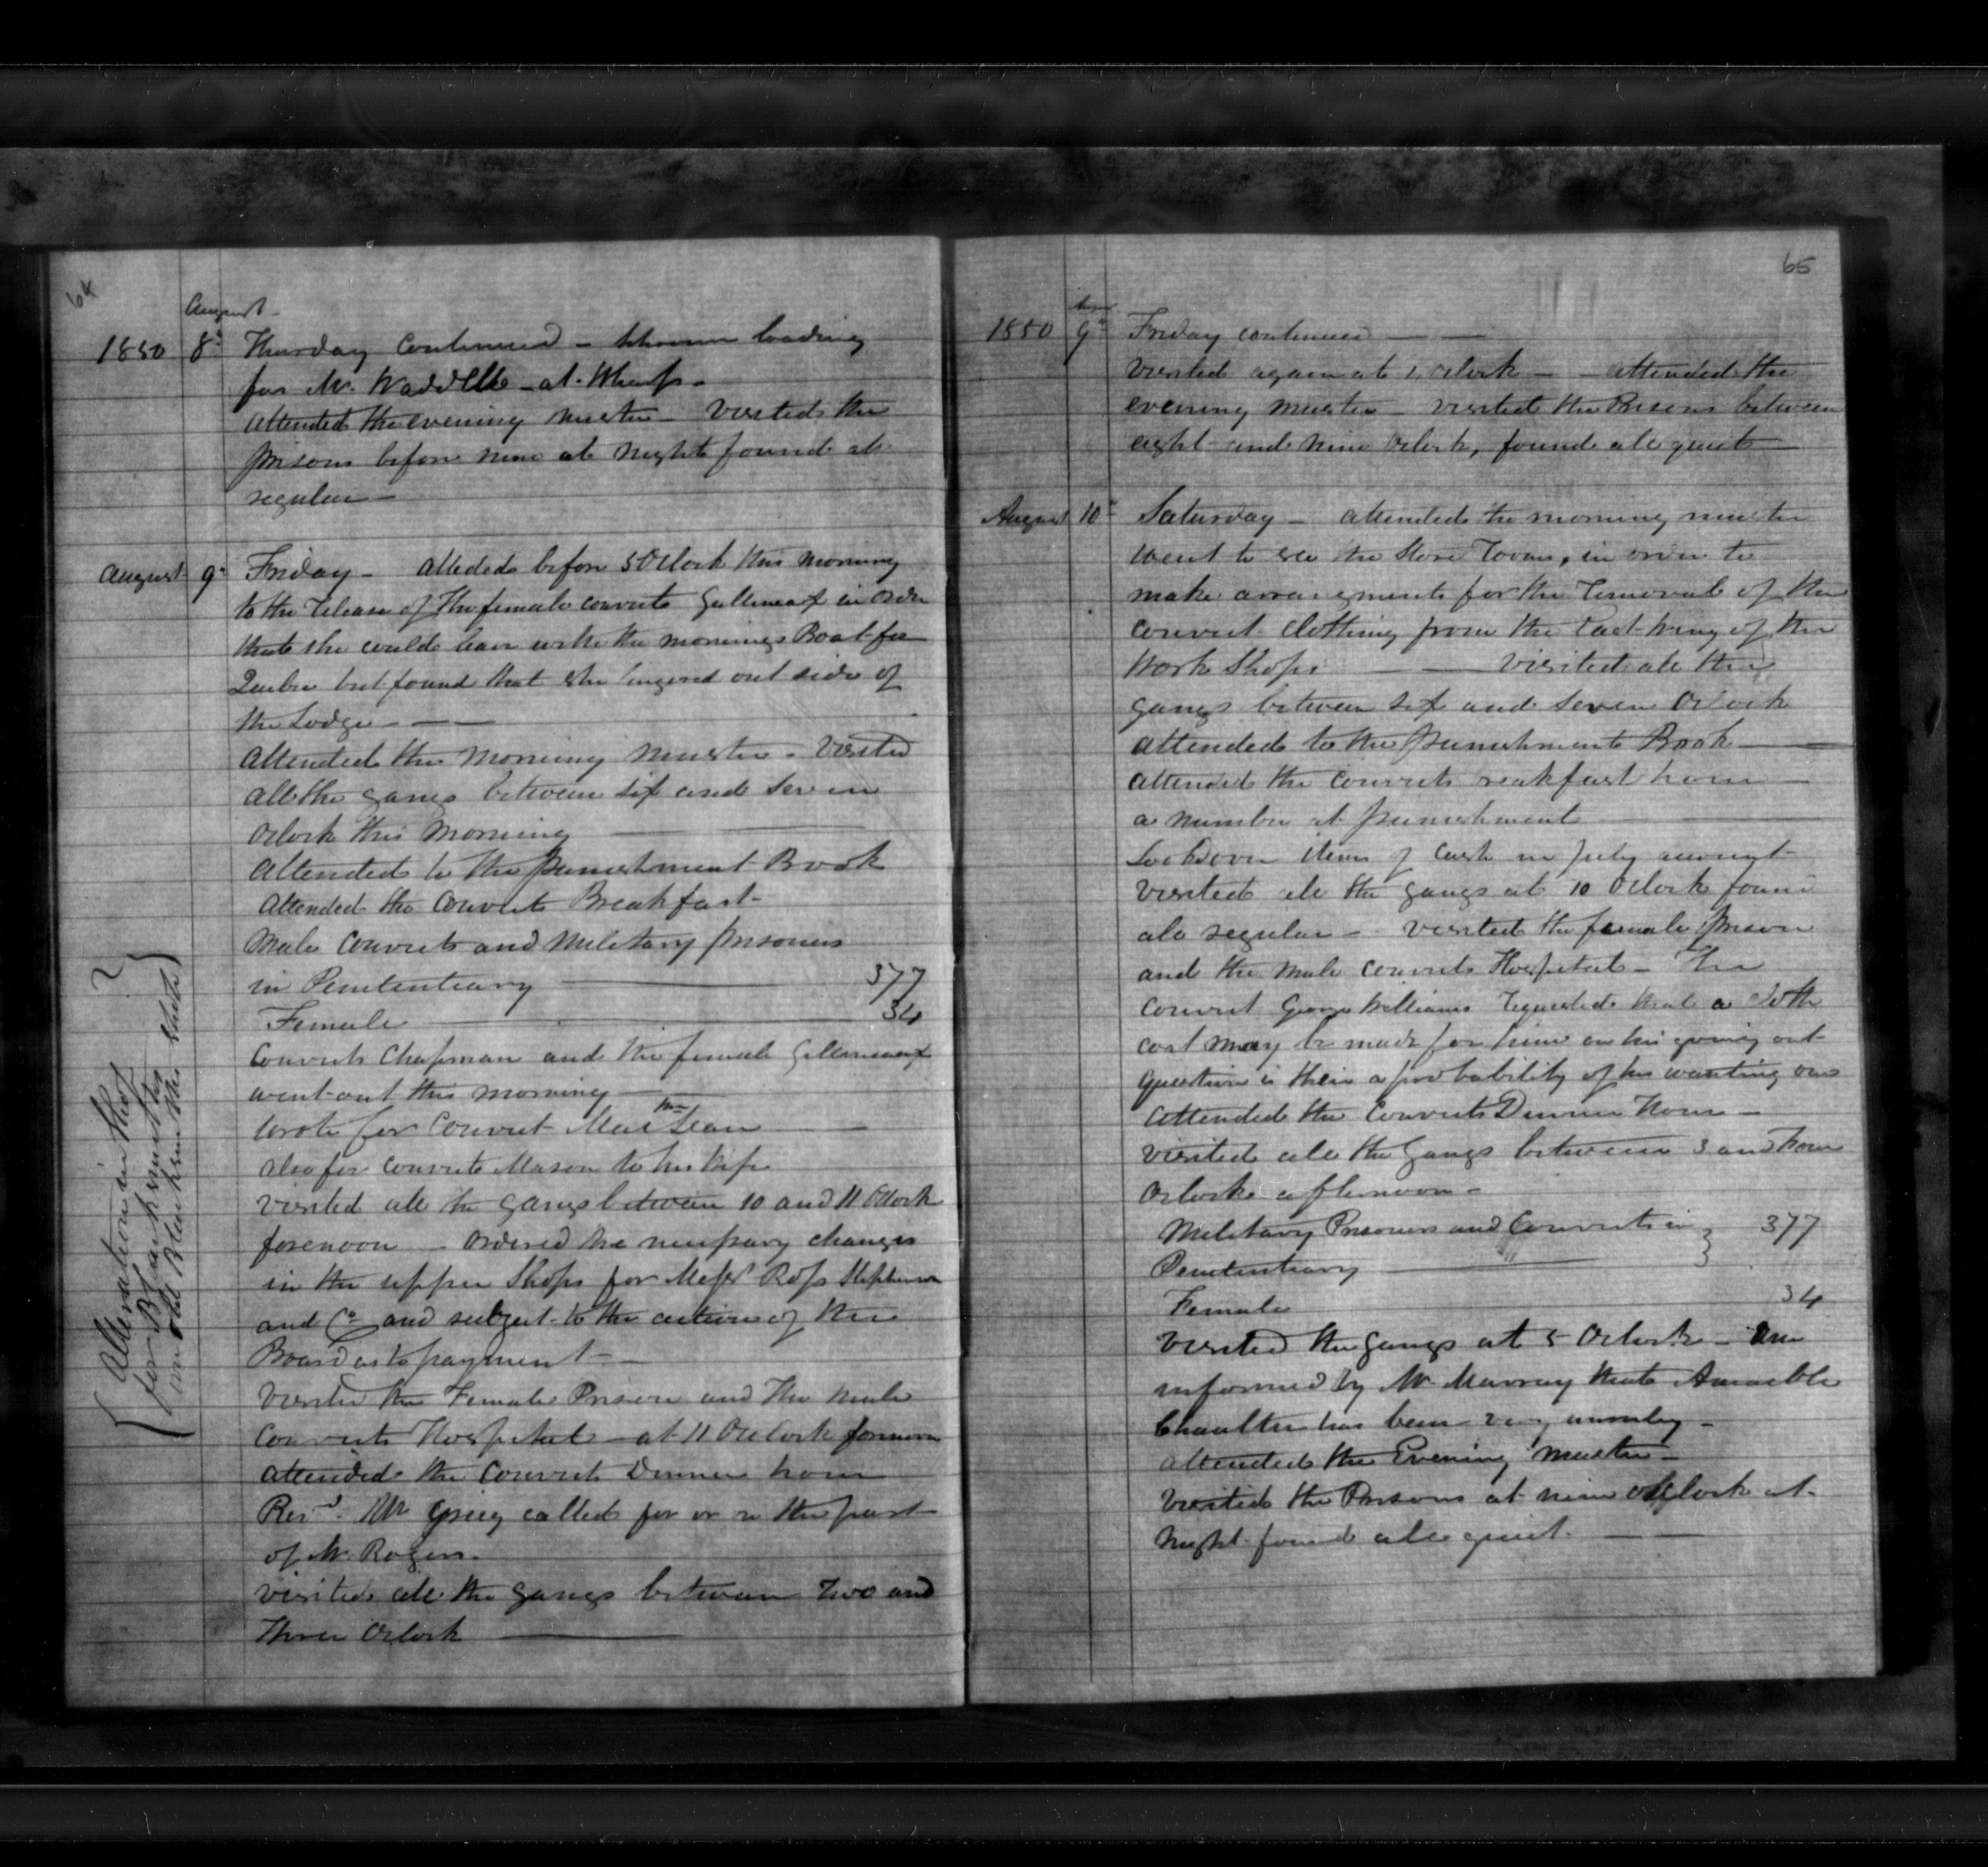 64
August
1850 8th Thursday continued - Schooner loading
for Mr. Waddelle - at Wharf -
attended the evening muster - Visited the
prisons before nine at night found all
regular -
August 9th Friday - attended before 5 OClock this morning
to the release of the female convict in order
that she could leave with the mornings Boat for
Quebec but found that she lingered out side of
the Lodge -
attended the morning muster - Visited
all the gangs between six and seven
OClock this morning
attended to the punishment Book
attended the convicts Breakfast -
Male convicts and Military prisoners
in Penitentiary 377
Female 34
Convicts Chapman and the female
went out this morning
wrote for Convict
also for convict Mason to his wife
visited all the gangs between 10 and 11 OClock
forenoon - ordered the necessary changes
in the upper Shops for Messrs Ross Stephenson
and Co and subject to the action of the
Board as to payment -
visited the Female Prison and the male
Convicts Hospital - at 11 OClock forenoon
attended the Convicts Dinner hour
Revd. Mr Grieg called for on the part
of Mr. Rogers.
visited all the gangs between two and
three OClock
{ Alteration in Shop
for Blanksmiths
in old Blanksmiths Shoto } ?
65
August
1850 9th Friday continued
visited again at OClock - - attended the
evening muster - visited the Prisons between
eight and nine OClock, found all quiet
August 10th Saturday - attended the morning muster
went to see the Store Room, in order to
make arrangements for the removal of the
convict clothing from the East wing of the
Work Shops - visited all the
gangs between six and seven OClock
attended to the punishment Book
attended the convicts reakfast hour
a number at punishment
Looked over items of Cash in July account
visited all the gangs at 10 OClock found
all regular - visited the female prison
and the male convicts Hospital - The
convict George Williams requested that a Cloth
coat may be made for him on his going out
question is their a probability of his wanting one
attended the Convicts Dinner hour -
visited all the Gangs between 3 and four
OClock afternoon -
Military Prisoners and Convicts in } 377
Penitentiary
Female 34
visited the gangs at 5 OClock - am
informed by Mr. Murray that Amable
has been very unruly -
attended the Evening muster -
visited the Prisons at nine oClock at
night found all quiet